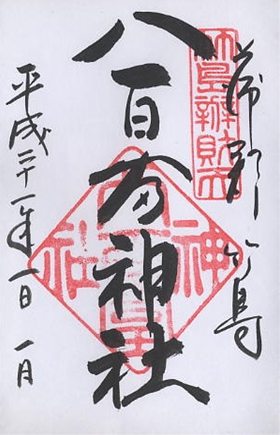 竹島辨財天
蒲郡竹島
八百富神社
神
社
平成二十一年一月一日